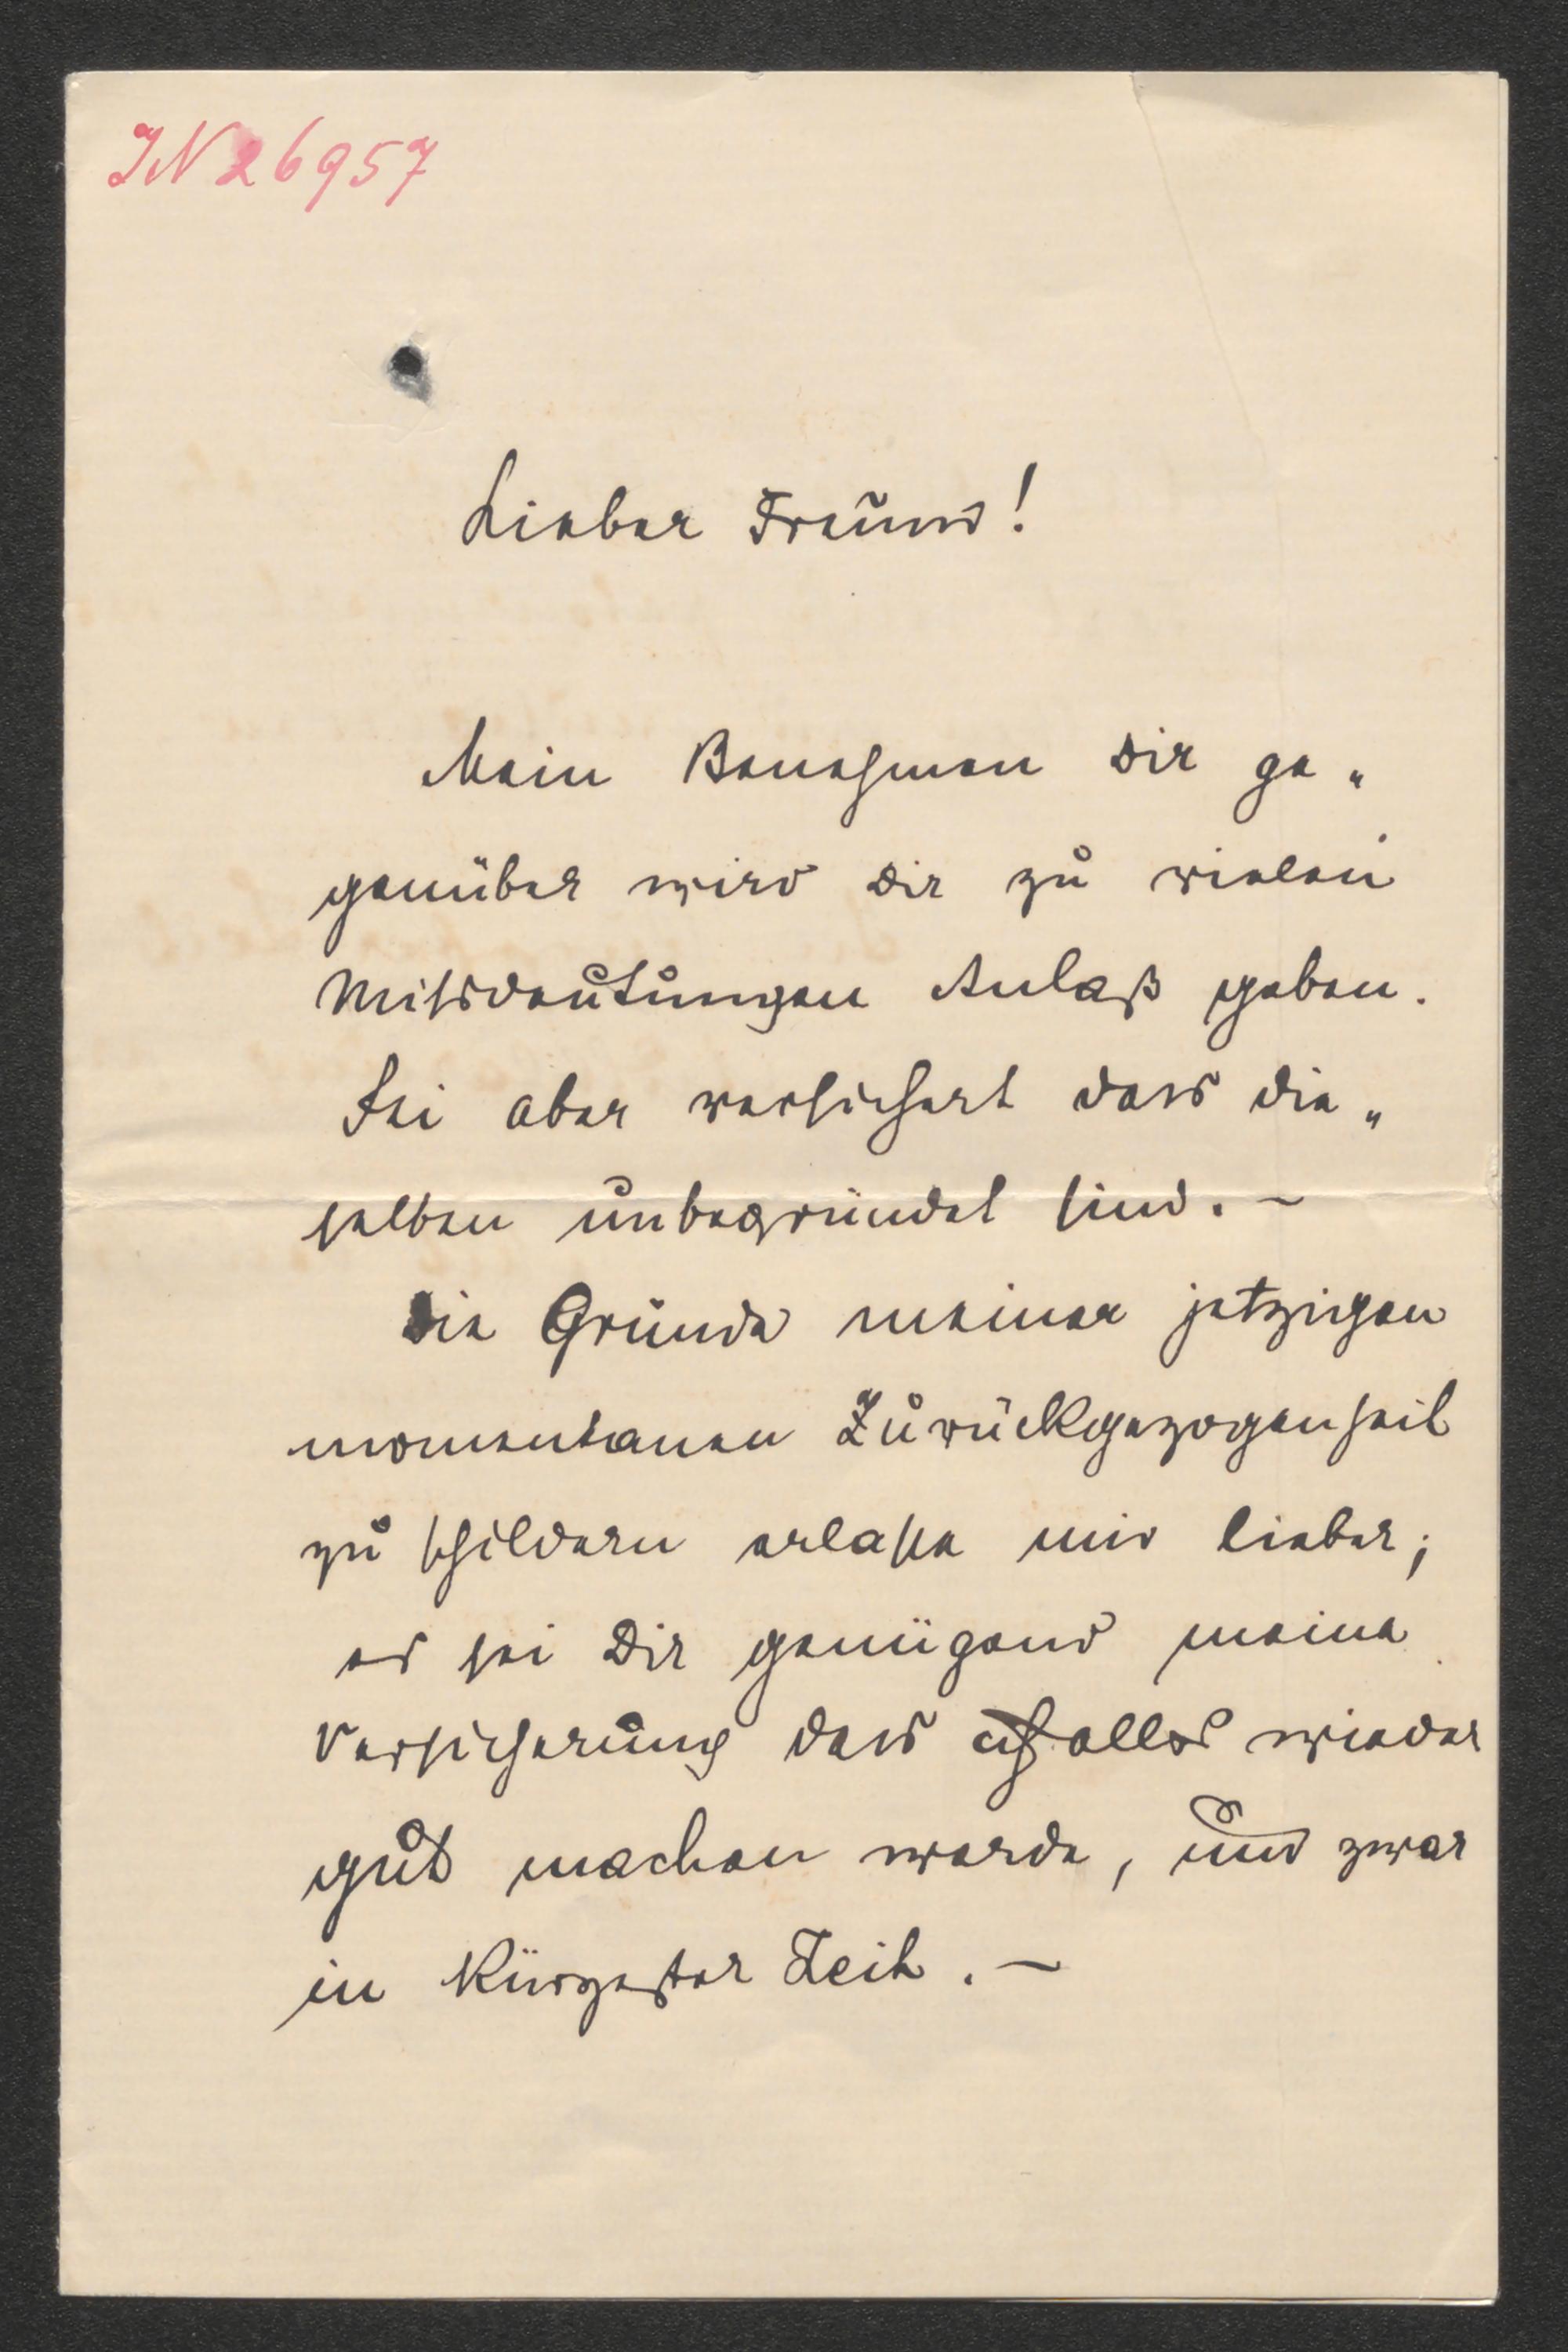 IN 26957
Lieber Freund!
Mein Benehmen Dir ge„
genüber wird Dir zu vielen
Missdeutungen Anlaß geben.
Sei aber versichert dass die„
selben unbegründet sind. –
Die Gründe meiner jetzigen
momentanen Zurückgezogenheit
zu schildern erlasse mir lieber;
es sei Dir genügend meine
Versicherung dass ich alles wieder
gut machen werde, und zwar
in kürzester Zeit. –